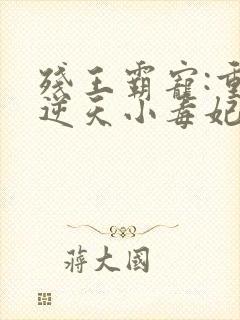 残王霸宠:重
逆天小毒妃
蒋大国